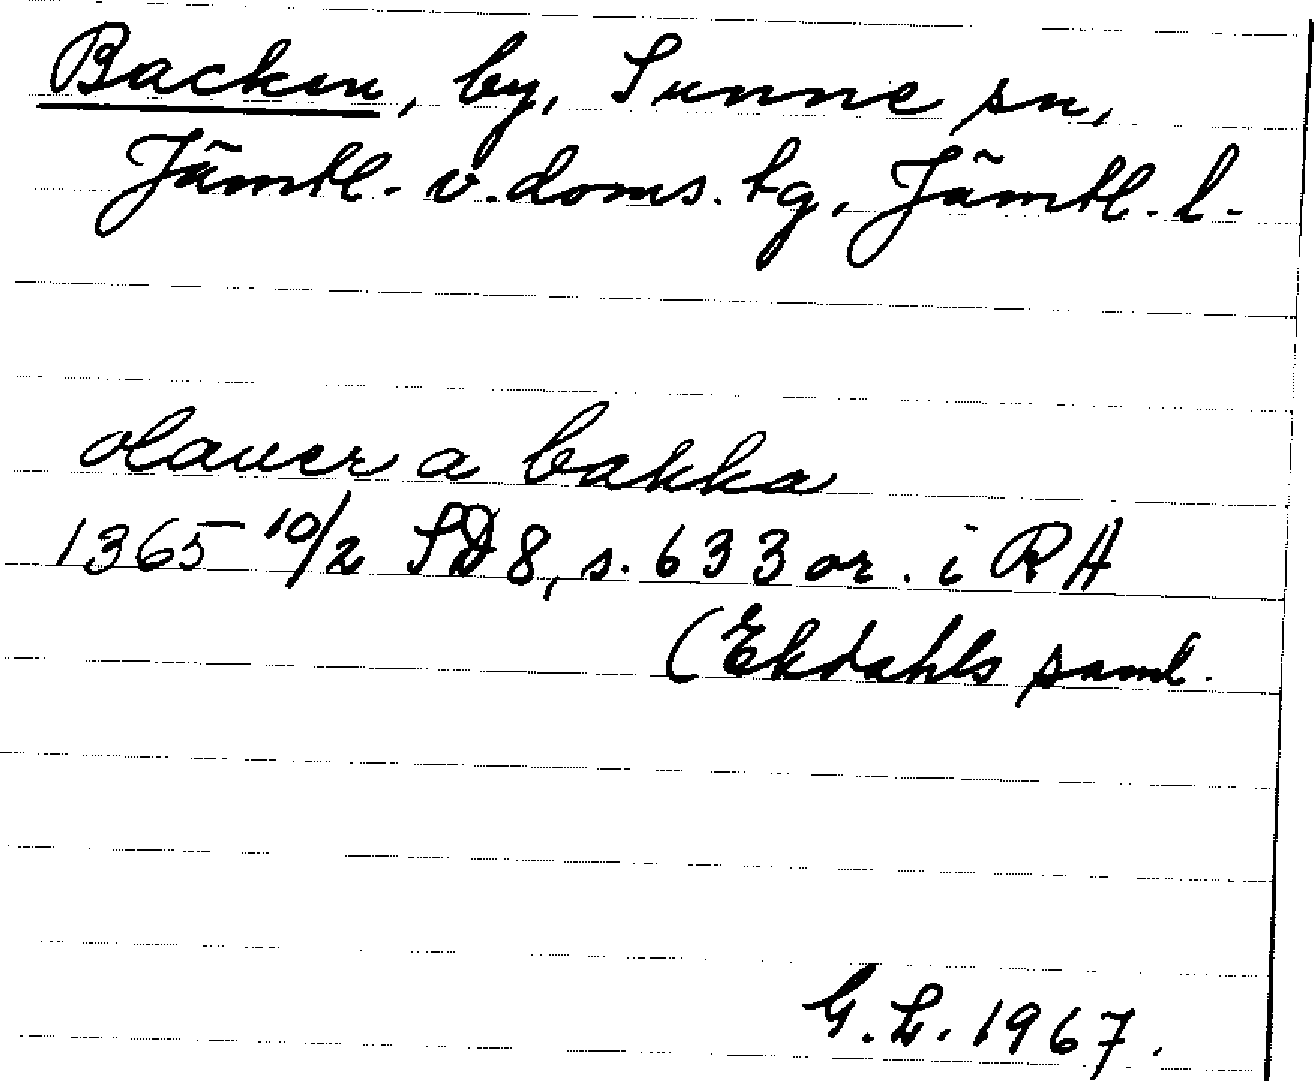 Backen, by, Sunne sn,
Jämtl. v. doms. tg, Jämtl. l.
olauer a bakka
1365 10/2 SD 8, s. 633 or. i RA
(Ekdahls saml.
G. L. 1967.